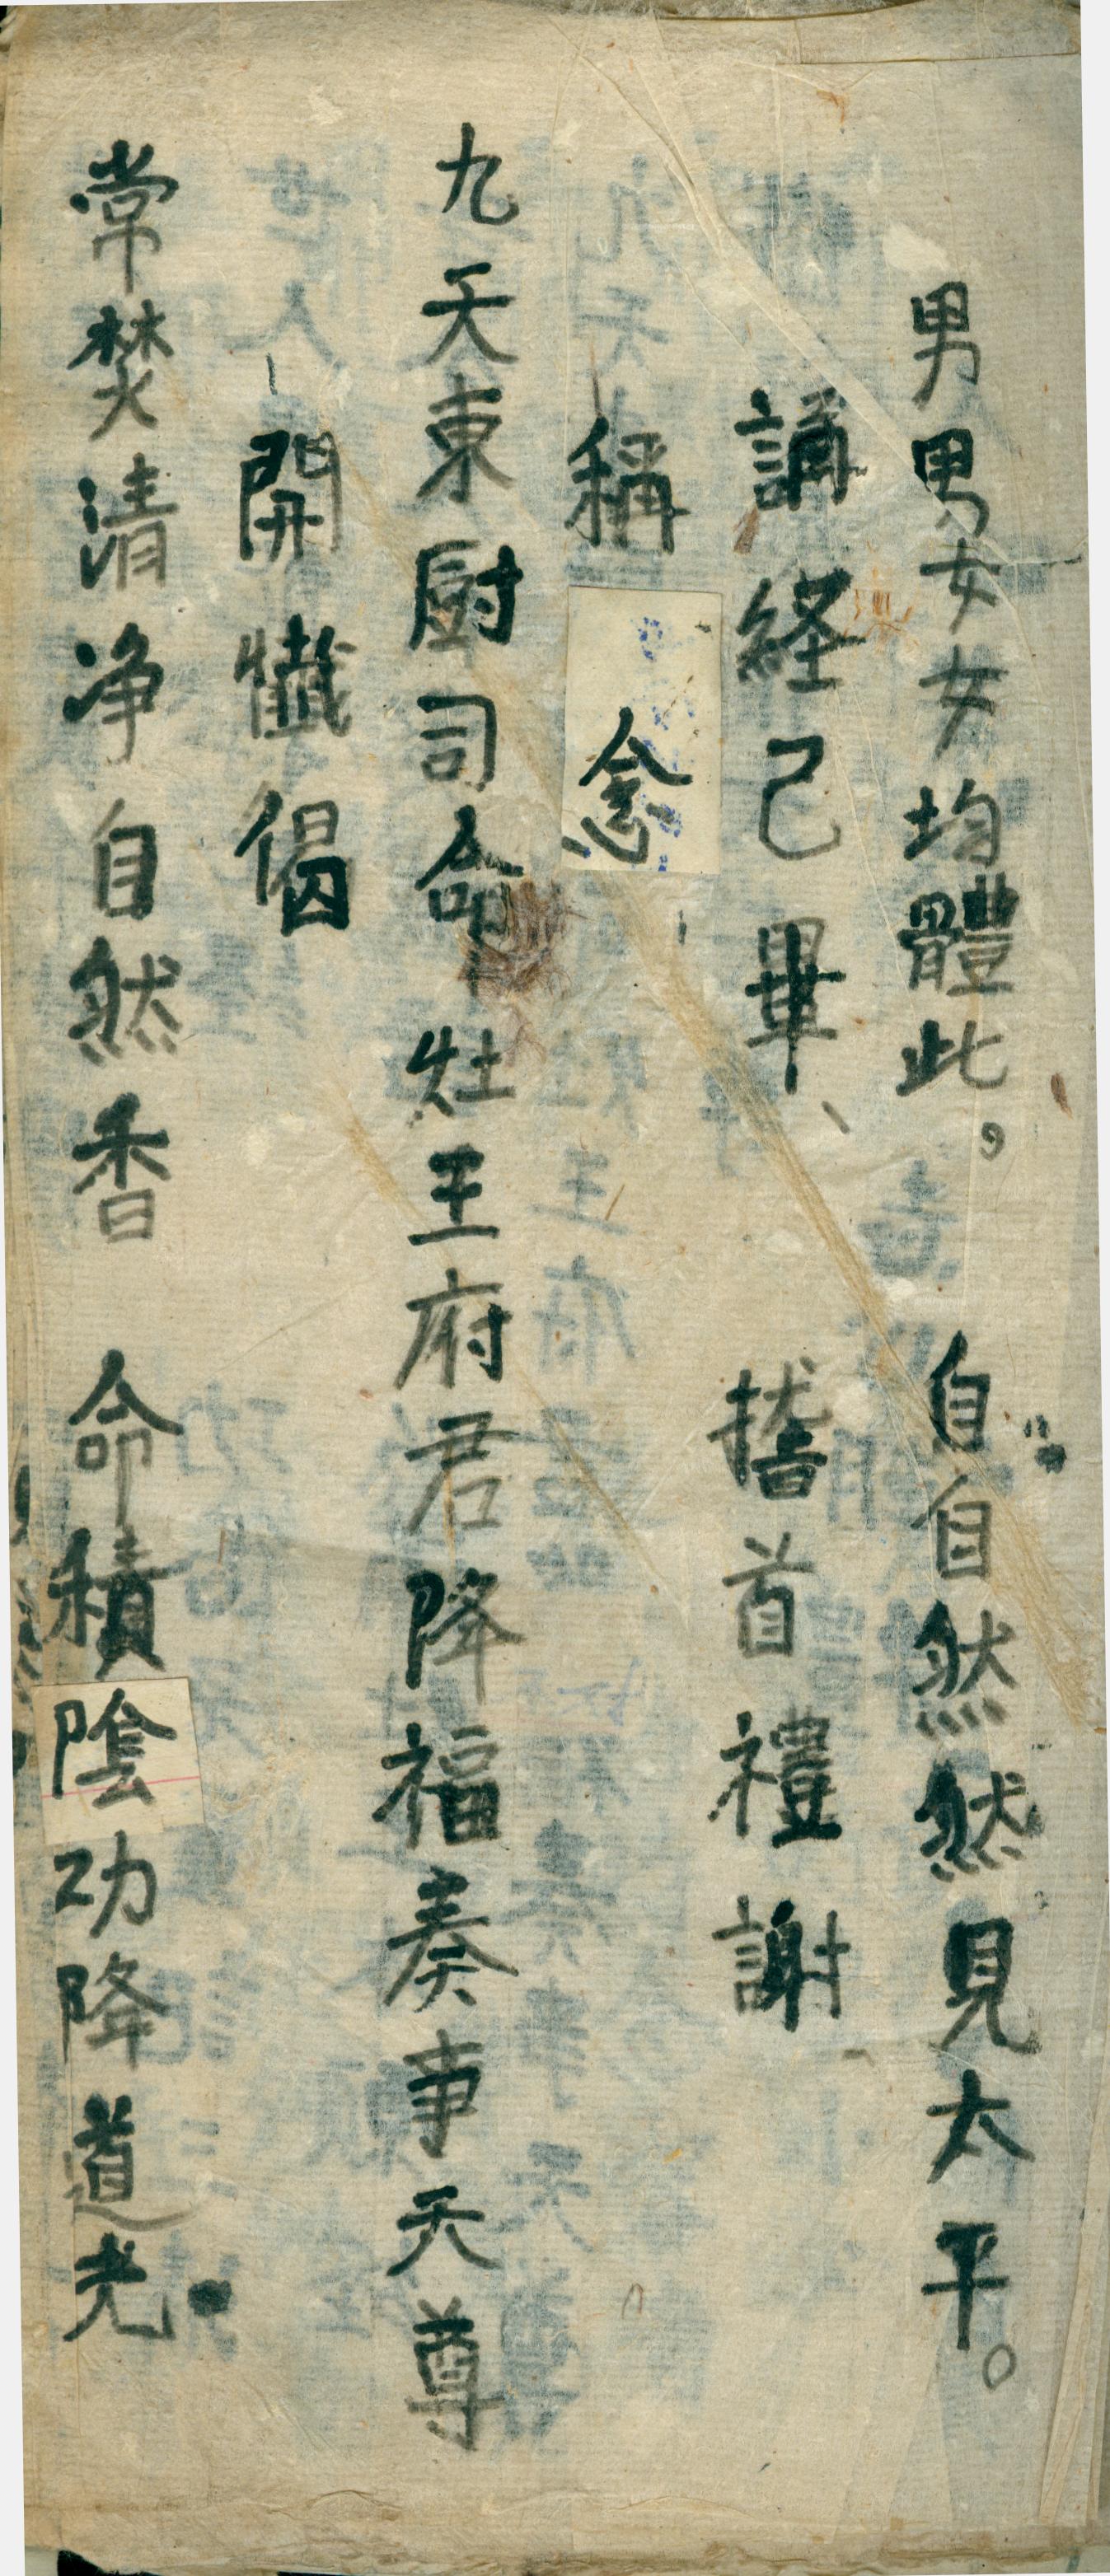 男男女女均體此，自自然然見太平。
誦経己畢、稽首禮謝
稱念
九天東厨司命灶王府君降福奏事天尊
開懺偈
常焚清净自然香 命積陰功降道光